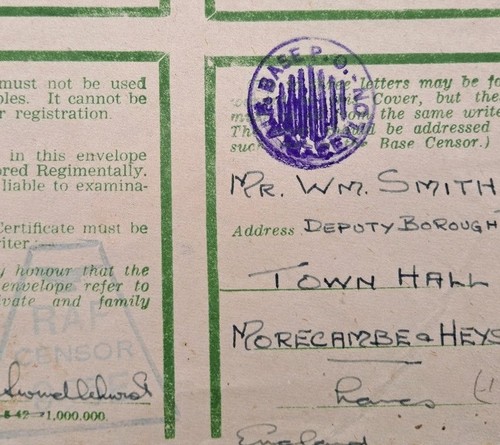 must not be used
ples. It cannot be
r registration.
in this envelope
ored Regimentally.
liable to examina-
Certificate must be
riter:—
y honour that the
envelope refer to
vate and family
RAF
CENSOR
5 42 1,000,000
BASE P.O.
letters may be fo
Cover, but the
the same write
Th should be addressed
suc e Base Censor.)
MR. WM. SMITH
Address DEPUTY BOROUGH
TOWN HALL
MORECAMBE & HEYS
Lancs (1
England